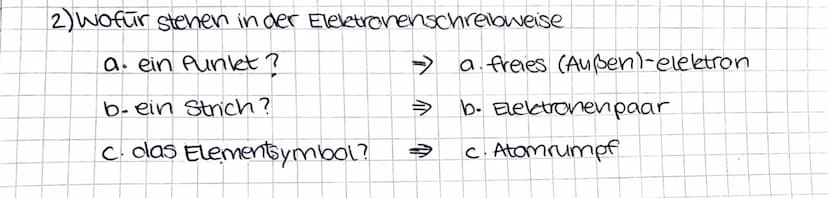 2) Wofür stehen in der Elektronenschreibweise
a. ein Punkt? → a. freies (Außen)-elektron
b. ein Strich? ⇒ b. Elektronenpaar
c. das Elementsymbol? ⇒ c. Atomrumpf